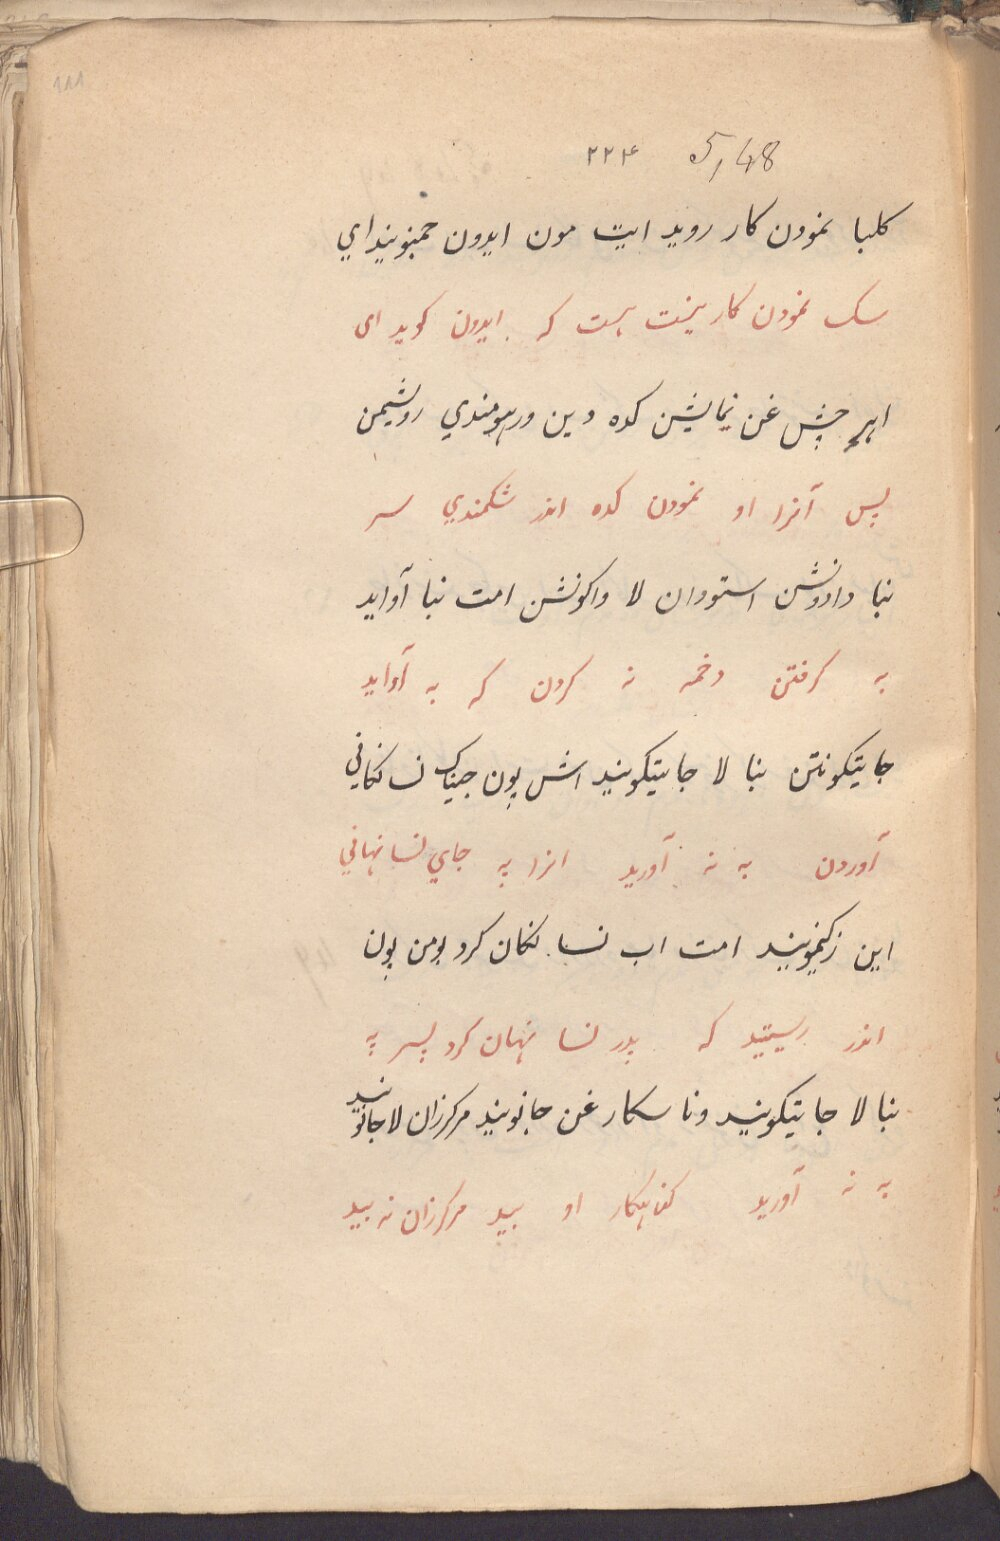 111
۲۲۴ 5,48
کلبا نمودن کار روید ایت مون ایدون جمنونیداي
سک نمودن کار یخت هست که ایدون کوید ای
اپر چش غن نمایشن کده دین ورهومندي رویشمن
پس آنرا او نمودن کده اندر شکمندي سر
نبا دادونشن استودان لا واکونشن امت نبا آواید
به کرفتن دخمه نه کردن که به آواید
جایتیکونتن بنا لا جایتیکویند اش پون جیناک نسا نکاني
آوردن به نه آورید انرا په جاي نسا نهاني
این زکیمویند امت اب نسا نکان کرد بومن پون
اندر ریستید که پدر نسا نهان کرد پسر په
نبا لا جایتیکویند وناسکار غن جانونید مرکرزان لا جانونید
به نه آورید کناهکار او بید مرکرزان نه بید